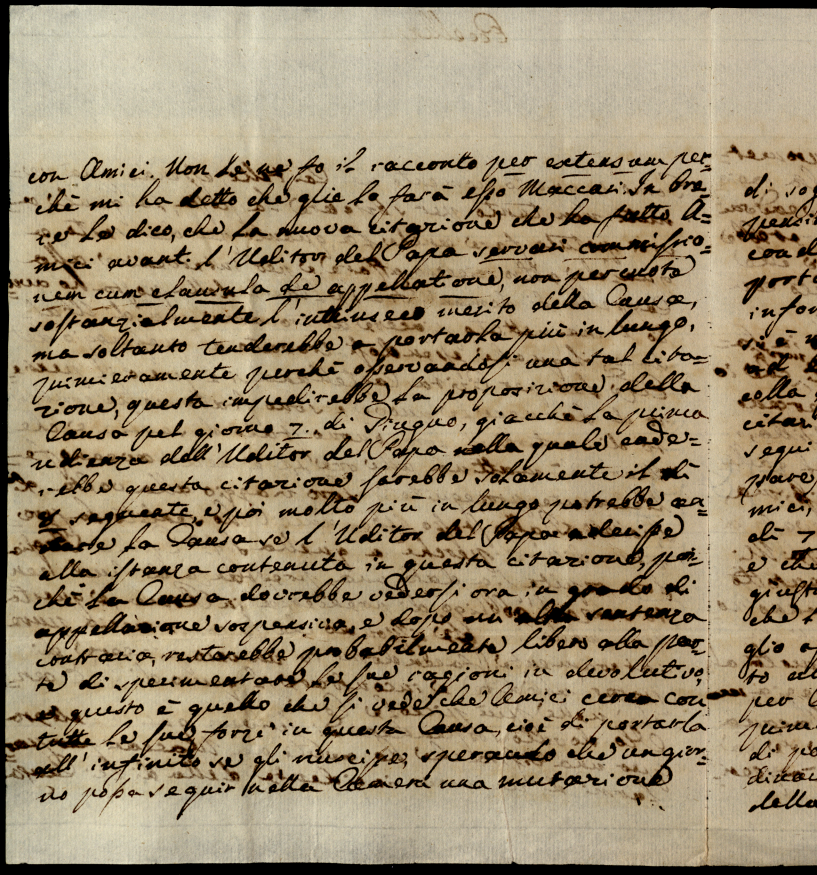 con Amici. Non Le ne fo il racconto per extensum per=
chè mi ha detto che glie lo farà esso Maccari. In bre=
ve Le dico, che La nuova citazione che ha fatto A=
mici avanti l'Uditor del Papa servari commissio=
nem cum clausula de appellatione, non percuote
sostanzialmente l'intrinseco merito della Causa,
ma soltanto tenderebbe a portarla più in lungo,
primieramente perchè osservandosi una tal cita=
zione, questa impedirebbe La proposizione della
Causa pel giorno 7. di Giugno, giacchè La prima
udienza dell'Uditor del Papa nella quale cade=
rebbe questa citazione sarebbe solamente il dì
seguente, e poi molto più in lungo potrebbe an=
dare La Causa se l'Uditor del Papa aderisse
alla istanza contenuta in questa citazione, per=
chè La Causa dovrebbe vedersi ora in grado di
appellazione sospensiva, e dopo un'altra sentenza
contraria, resterebbe probabilmente libero alla par=
te di sperimentare Le sue ragioni in devolutivo,
e questo è quello che si vede che Amici cerca con
tutte Le sue forze in questa Causa, cioè di portarla
all'infinito se gli riuscisse, sperando che un gior=
no possa seguir nella Camera una mutazione
di
con
porta
cella
citaz
segui
mici,
di 7
e che
giust
che
glio
to
per
prim
di
della